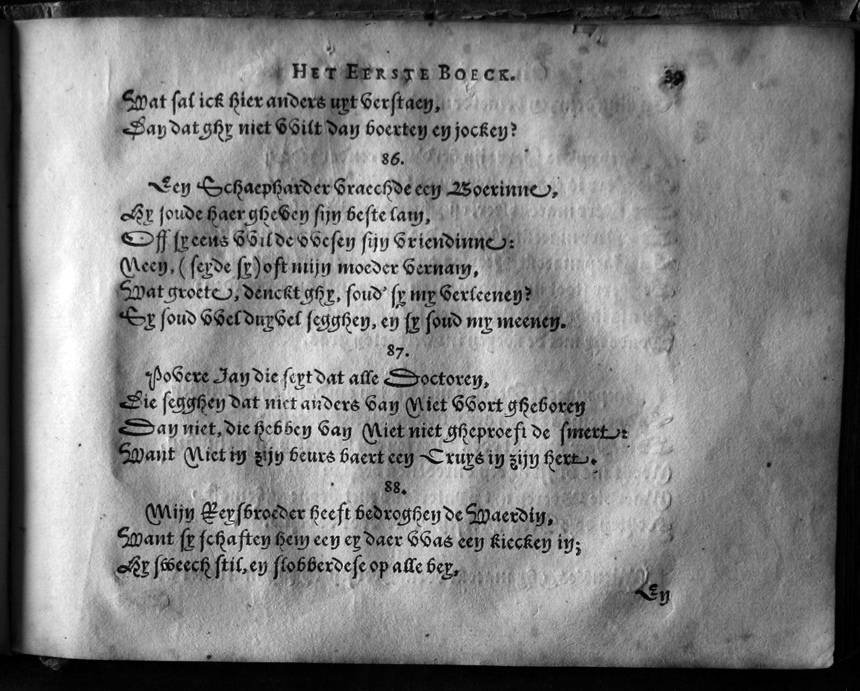 HET EERSTE BOECK. 39
Wat sal ick hier anders uyt verstaen,
Dan dat ghy niet wilt dan boerten en jocken?
86.
Een Schaepharder vraechde een Boerinne,
Hy soude haer gheven sijn beste lam,
Off sy eens wilde wesen sijn vriendinne:
Neen, (seyde sy) oft mijn moeder vernam,
Wat groete, denckt ghy, soud' sy my verleenen?
Sy soud wel duyvel segghen, en sy soud my meenen.
87.
Povere Jan die seyt dat alle Doctoren,
Die segghen dat niet anders van Niet wort gheboren
Dan niet, die hebben van Niet niet gheproeft de smert:
Want Niet in zijn beurs baert een Cruys in zijn hert.
88.
Mijn Reysbroeder heeft bedroghen de Waerdin,
Want sy schaften hem een ey daer was een kiecken in;
Hy sweech stil, en slobberdese op alle bey,
En